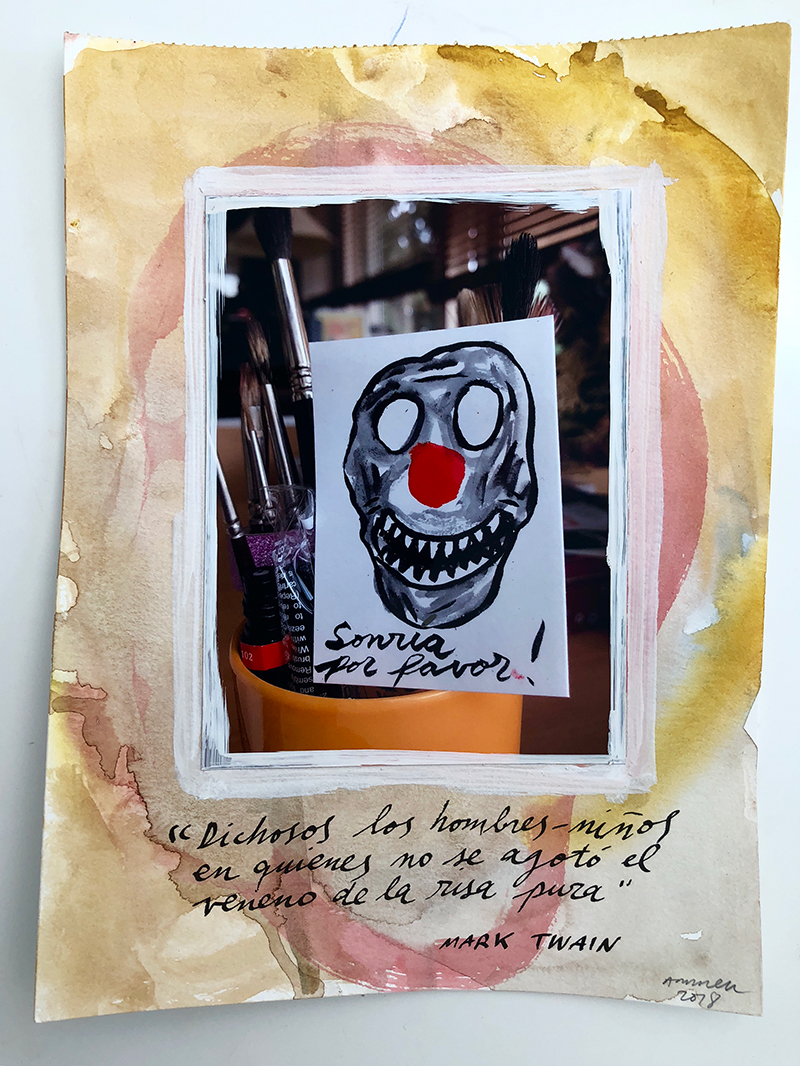 Sonria
por favor!
102
"Dichosos los hombres-niños
en quienes no se agotó el
veneno de la risa pura"
MARK TWAIN
2018